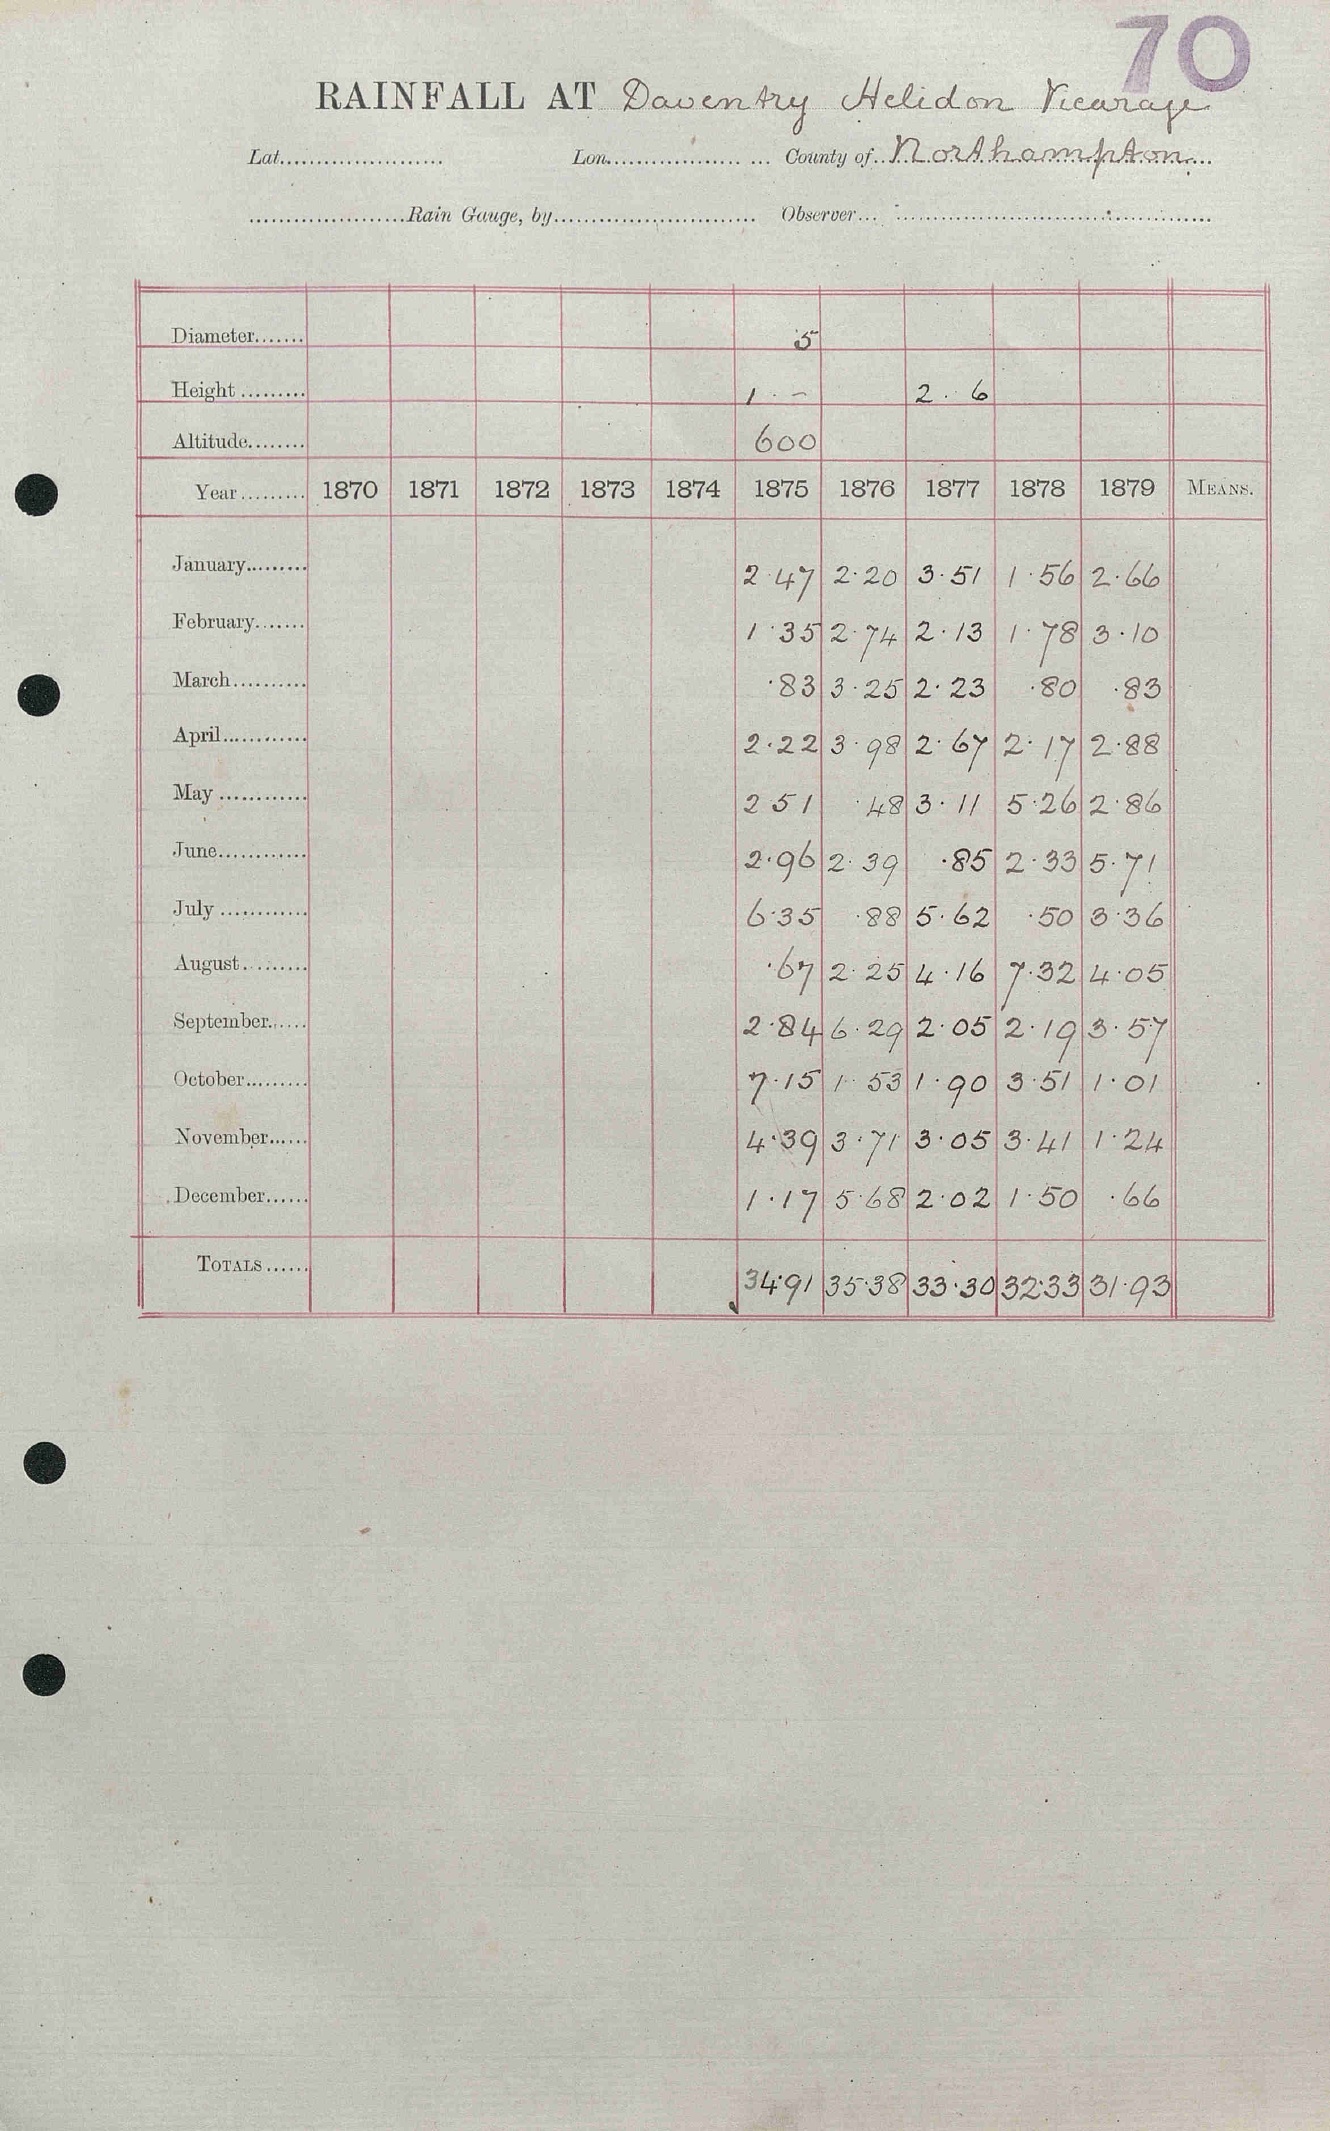 70
RAINFALL AT Daventry Helidon Vicarage
Lat...................... Lon.................. ... County of..Northampton....
.....................Rain Gauge, by........................... Observer... ...........................................
Diameter....... 5
Height ......... 1 . - 2 . 6
Altitude........ 600
Year......... 1870 1871 1872 1873 1874 1875 1876 1877 1878 1879 MEANS.
January......... 2·47 2·20 3·51 1·56 2·66
February....... 1·35 2·74 2·13 1·78 3·10
March.......... ·83 3·25 2·23 ·80 ·83
April............ 2·22 3·98 2·67 2·17 2·88
May ............ 2 51 ·48 3·11 5·26 2·86
June............ 2·96 2·39 ·85 2·33 5·71
July ............ 6·35 ·88 5·62 ·50 3·36
August......... ·67 2·25 4·16 7·32 4·05
September...... 2·84 6·29 2·05 2·19 3·57
October......... 7·15 1·53 1·90 3·51 1·01
November...... 4·39 3·71 3·05 3·41 1·24
December...... 1·17 5·68 2·02 1·50 ·66
TOTALS...... 34·91 35·38 33·30 32·33 31·93